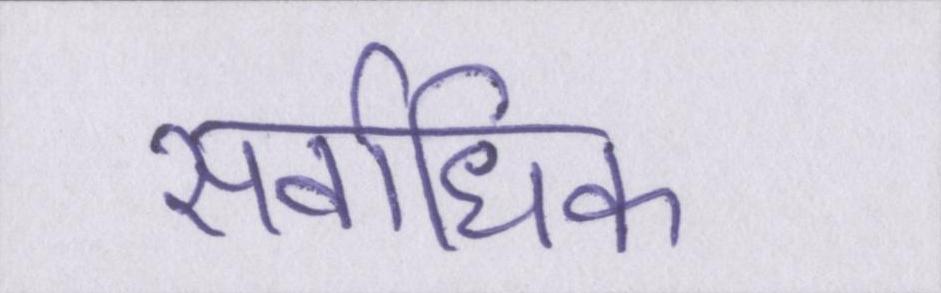 सर्वाधिक